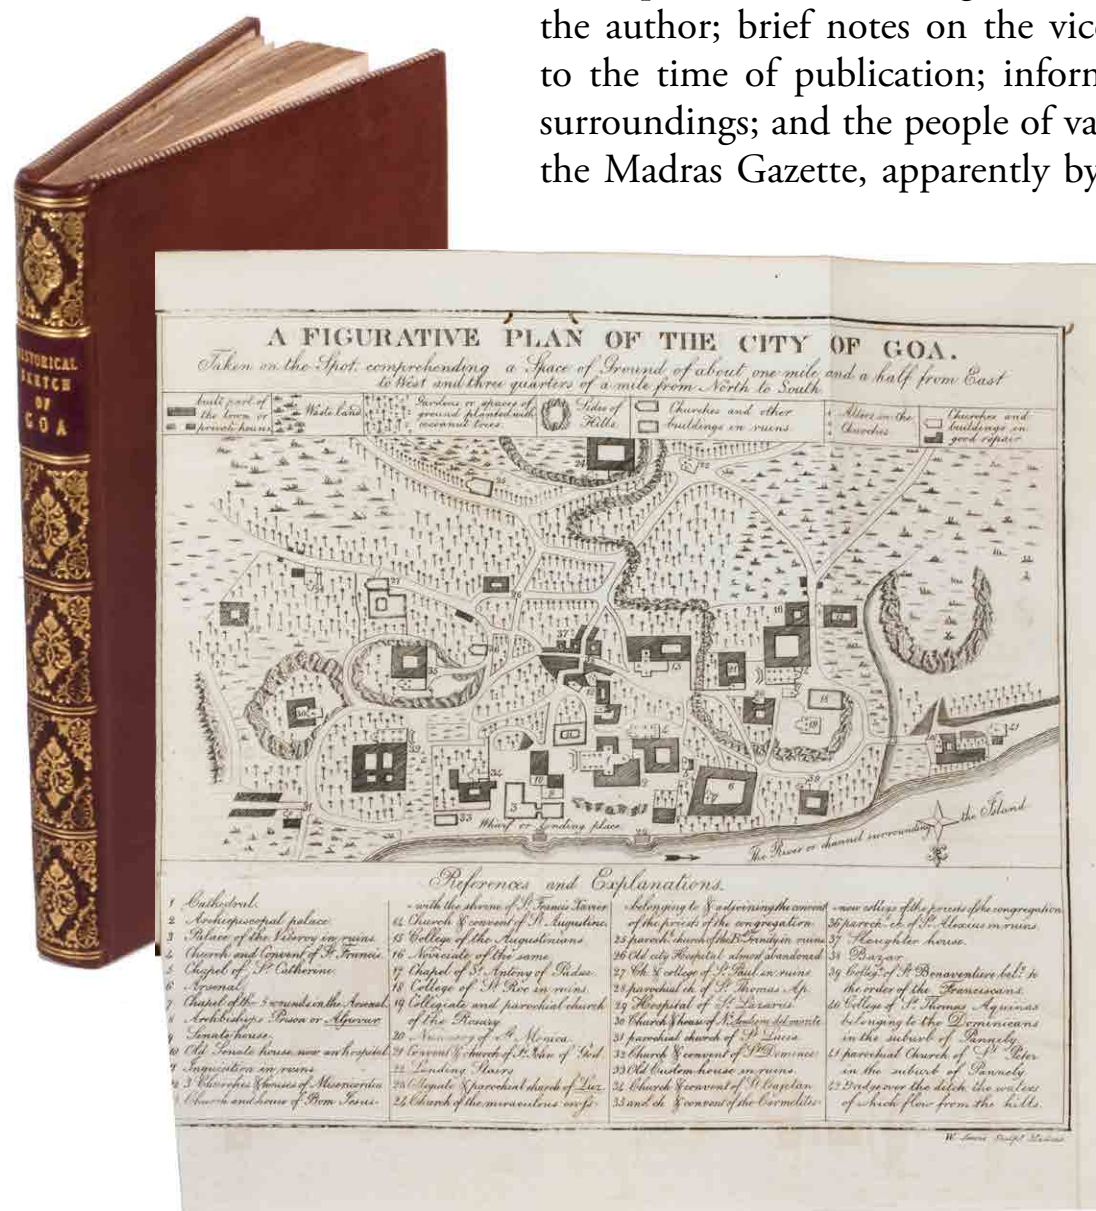 the author; brief notes on the vice
to the time of publication; inform
surroundings; and the people of va
the Madras Gazette, apparently by
HISTORICAL
SKETCH
OF
GOA
A FIGURATIVE PLAN OF THE CITY OF GOA.
Taken on the Spot, comprehending a Space of Ground of about one mile and a half from East
to West and three quarters of a mile from North to South
built part of
the town or
private houses
Waste land
Gardens or spaces of
ground planted with
cocoanut trees.
Sides of
Hills.
Churches and other
buildings in ruins
Altars in the
Churches
Churches and
buildings in
good repair
Wharf or landing place
The River or channel surrounding the Island
References and Explanations.
1 Cathedral.
2 Archiepiscopal palace
3 Palace of the Viceroy in ruins
4 Church and Convent of St. Francis
5 Chapel of St. Catherine
6 Arsenal
7 Chapel of the 5 wounds in the Arsenal
8 Archbishops Prison or Aljuvar
9 Senate house
10 Old Senate house now an hospital
Inquisition in ruins
3 Churches & houses of Misericordia
Church and house of Bom Jesus
with the shrine of St. Francis Xavier
14 Church & convent of St. Augustine
15 College of the Augustinians
16 Noviciate of the same
17 Chapel of St. Antony of Padua
18 College of St. Roc in ruins
19 Collegiate and parochial church
of the Rosary
20 Nunnery of St. Monica
21 Convent & church of St. John of God
22 Landing Stairs
23 parochial church of Luz
24 Church of the miraculous cross
belonging to & adjoining the convent
of the priests of the congregation
25 paroch. church of the B. Trinity in ruins
26 Old city Hospital almost abandoned
27 Ch. & college of St. Paul in ruins
28 parochial ch. of St. Thomas Ap.
29 Hospital of St. Lazarus
30 Church & house of N. Senhora del monte
31 parochial church of St. Lucia
32 Church & convent of St. Dominic
33 Old Custom house in ruins
34 Church & convent of St. Cajetan
35 and ch. & convent of the Carmelites
now college of the priests of the congregation
36 paroch. ch. of St. Alexius in ruins
37 Slaughter house.
38 Bazar
39 Colleg. of St. Bonaventure bel. to
the order of the Franciscans.
40 College of St. Thomas Aquinas
belonging to the Dominicans
in the suburb of Pannely
41 parochial Church of St. Peter
in the suburb of Pannely
42 Bridge over the ditch the waters
of which flow from the hills.